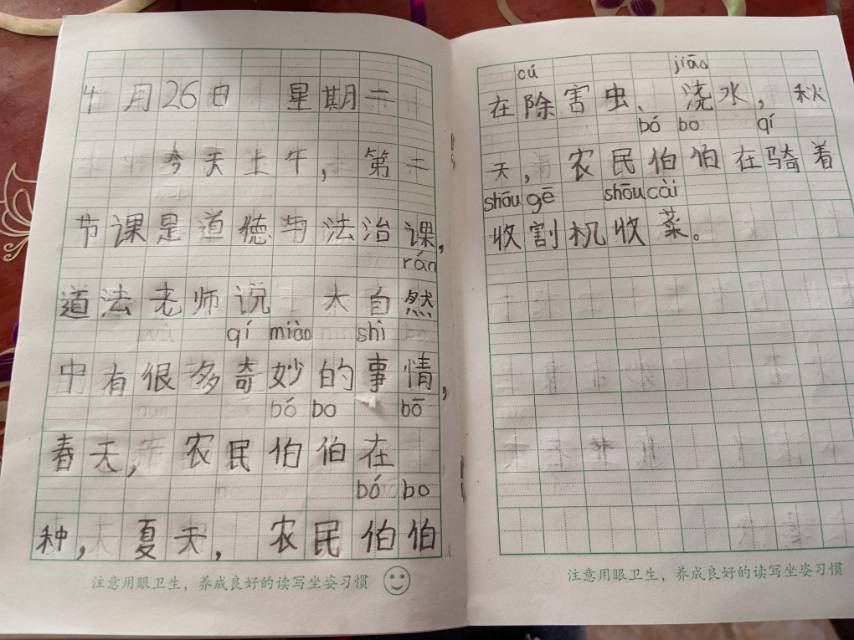 4月26日 星期二
今天上午，第二
节课是道德与法治课，
rán
道法老师说 大自然
qí miào shì
中有很多奇妙的事情，
bó bo bō
春天，农民伯伯在
bó bo
种，夏天，农民伯伯
注意用眼卫生，养成良好的读写坐姿习惯
cú jiāo
在除害虫、浇水，秋
bó bo qí
天，农民伯伯在骑着
shōu gē shōu cài
收割机收菜。
注意用眼卫生，养成良好的读写坐姿习惯